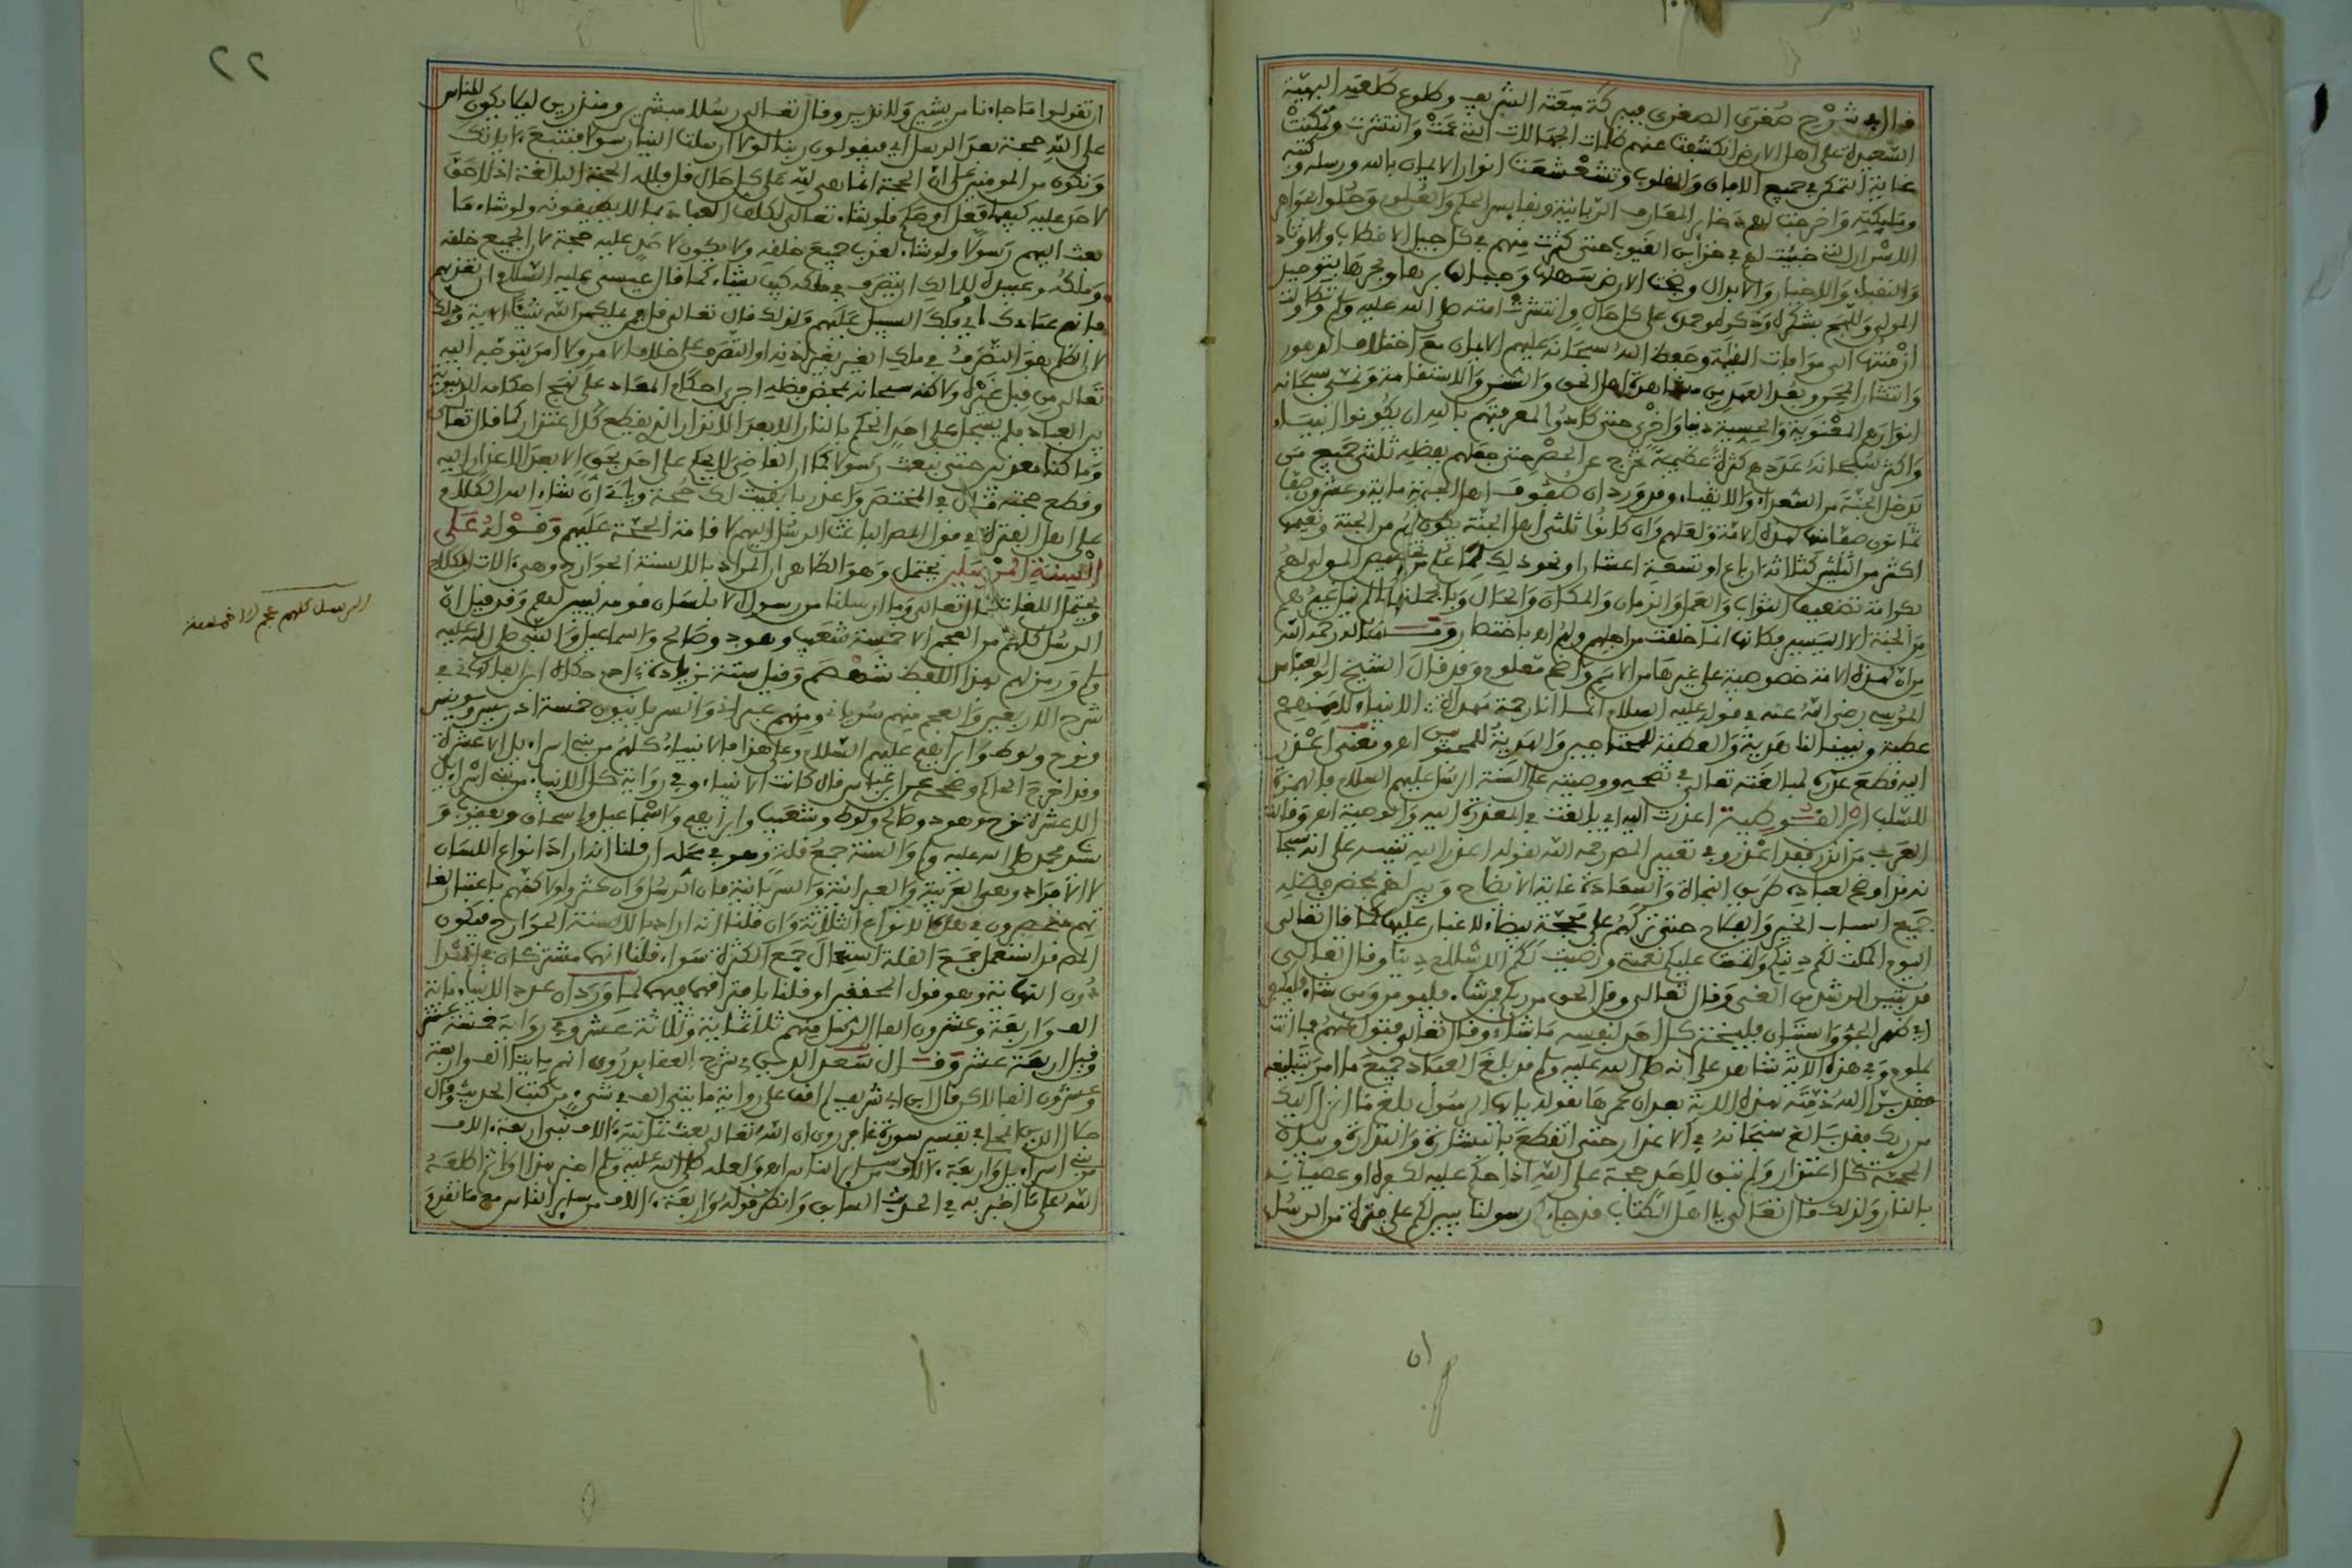 قال في شرح صغرى الصغرى فببركة بعثته الشريفة وطلوع طلعته البهية
السعيدة على اهل الارض انكشفت عنهم ظلمات الجهالات التي عمت وانتشرت وتمكنت
غاية التمكن في جميع الابدان والقلوب وتشعشعت انوار الايمان بالله ورسله وكتبه
وملايكته واخرجت لهم ذخاير المعارف الربانية ونفايس الحكم والعلوم وحلوا بجواهر
الاسرار التي خبئت لهم في خزاين الغيوب حتى كثرت منهم في كل جيل الاقطاب والاوتاد
والنقباء والاخيار والابدال وضجت الارض سهلها وجبلها برها وبحرها بتوحيد
المولى واللهج بشكره وذكره وحمده على كل حال وانتشرت امته صلى الله عليه وسلم وتطاولت
ازمنتها الى موافات القيمة وحفظ الله سبحانه عليهم الايمان مع اختلاف الدهور
وانتشار المحن وبعد العهد من مشاهدة اهل الحق والتثبت والاستقامة ونمى سبحانه
انوارهم المعنوية والحسية دنيا واخرى حتى كادوا لمعرفتهم بالله ان يكونوا انبياء
واكثر سبحانه عددهم كثرة عظيمة تخرج عن الحصر حتى جعلهم بفضله ثلثي جميع من
يدخل الجنة من السعداء والاتقياء وقد ورد ان صفوف اهل الجنة ماية وعشرون صفا
ثمانون صفا منها هذه الامة ولعلهم وان كانوا ثلثي اهل الجنة يكون لهم من الجنة ونعيمها
اكثر من الثلثين كثلاثة ارباع او تسعة اعشار او نحو ذلك لما علم من تخصيص المولى لهم
بكرامة تضعيف الثواب والعمل والزمان والمكان والحال وبالجملة
من الجنة الا اليسير وكانها انما خلقت من اجلهم ولهم اهـ باختصار وقوله رحمه الله
من ان هذه الامة خصوصية على غيرها من الامم واضح معلوم وقد قال الشيخ ابو العباس
المرسي رضي الله عنه في قوله عليه السلام انما انا رحمة مهداة الانبياء لاممهم
عطية ونبينا لنا هدية والعطية للمحتاجين والهدية للمحبوبين اهـ ومعنى اعذر
اليه قطع عذره لمبالغته تعالى في نصحه ووصيته على السنة الرسل عليهم السلام فالهمزة
للسلب ابن القوطية اعذرت اليه اي بالغت في المعذرة اليه والوصية اهـ وقالت
العرب من انذر فقد اعذر وفي تعبير المص رحمه الله بقوله اعذر اليه تنبيه على انه سبحا
نه قد اوضح لعباده طريق النجاة والسعادة غاية الايضاح وبين لهم بمحض فضله
جميع اسباب الخير والفلاح حتى تركهم على محجة بيضاء لا غبار عليها كما قال تعالى
اليوم اكملت لكم دينكم واتممت عليكم نعمتي ورضيت لكم الاسلام دينا وقال تعالى
قد تبين الرشد من الغي وقال تعالى وقل الحق من ربكم فمن شاء فليومن ومن شاء فليكفر
اي ظهر الحق واستبان فليختر كل احد لنفسه ما شاء وقال تعالى فتول عنهم فما انت
بملوم وفي هذه الاية شاهد على انه صلى الله عليه وسلم قد بلغ العباد جميع ما امر بتبليغه
فقد برا الله ذمته بهذه الاية بعد ان عمرها بقوله يا ايها الرسول بلغ ما انزل اليك
من ربك فقد بالغ سبحانه في الاعذار حتى انقطع بالبشارة والنذارة وسلك
المحجة كل اعتذار ولم تبق لاحد حجة على الله اذا حكم عليه لكفره او عصيانه
بالنار ولذلك قال تعالى يا اهل الكتاب قد جاءكم رسولنا يبين لكم على فترة من الرسل
٢٢
ان تقولوا ما جاءنا من بشير ولا نذير وقال تعالى رسلا مبشرين ومنذرين ليلا يكون للناس
على الله حجة بعد الرسل اي فيقولون ربنا لولا ارسلت الينا رسولا فنتبع ءاياتك
ونكون من المومنين على ان الحجة انما هي لله على كل حال قل فلله الحجة البالغة اذ لا حق
لاحد عليه كيفما فعل او حكم فلو شاء تعالى لكلف العباد بما لا يطيقونه ولو شاء ما
بعث اليهم رسولا ولو شاء لعذب جميع خلقه ولا يكون لاحد عليه حجة لان الجميع خلقه
وملكه وعبيده وللمالك ان يتصرف في ملكه كيف يشاء كما قال عيسى عليه السلام ان تعذبهم
فانهم عبادك اي فلك السبيل عليهم ولذلك قال تعالى قل فمن يملك من الله شيئا الاية وذلك
لان الظلم هو التصرف في ملك الغير بغير اذنه او التصرف على خلاف الامر ولا امر يتوجه اليه
تعالى من قبل غيره ولاكنه سبحانه بمحض فضله اجرى احكام المعاد على نهج احكامه الدنيوية
بين العباد فلم يسجل على احد الحكم بالنار الا بعد الانذار الذي يقطع كل اعتذار كما قال تعالى
وما كنا معذبين حتى نبعث رسولا كما ان القاضي لا يحكم على احد بحق الا بعد الاعذار اليه
وقطع حجته قال في المختصر واعذر باَبقيت لك حجة وياتي ان شاء الله الكلام
على اهل الفترة في قول المص الباعث الرسل اليهم لاقامة الحجة عليهم وقوله على
السنة المرسلين يحتمل وهو الظاهر ان المراد بالالسنة الجوارح وهي ءالات الكلام
ويحتمل اللغات قال تعالى وما ارسلنا من رسول الا بلسان قومه ليبين لهم وقد قيل ان
الرسل كلهم من العجم الا خمسة شعيب وهود وصالح واسماعيل والنبي صلى الله عليه
وسلم ورمز لهم بهذا اللفظ شهصم وقيل ستة بزيادة ءادم حكاه ابن الفاكهاني في
شرح الاربعين والعجم منهم سرياني ومنهم عبراني والسريانيون خمسة ادريس ويونس
ونوح ولوط وابراهيم عليهم السلام وعلى هذا فالانبياء كلهم من بني اسراءيل الا عشرة
وقد اخرج الحاكم وصححه عن ابن عباس قال كانت الانبياء وفي رواية كل الانبياء من بني اسراءيل
الا عشرة نوح وهود وصالح ولوط وشعيب وابراهيم واسماعيل واسحاق ويعقوب و
سيدنا محمد صلى الله عليه وسلم والسنة جمع قلة وهو في محله ان قلنا انه اراد انواع اللسان
لا الافراد وهي العربية والعبرانية والسريانية فان الرسل وان كثروا ولاكنهم باعتبار لغا
تهم منحصرون في هذه الانواع الثلاثة وان قلنا انه اراد بالالسنة الجوارح فيكون
المص قد استعمل جمع القلة استعمال جمع الكثرة سواء قلنا انهما مشتركان في المبدا
دون النهاية وهو قول المحققين او قلنا بافتراقهما فيهما لما ورد ان عدد الانبياء ماية
الف واربعة وعشرون الفا الرسل منهم ثلاثماية وثلاثة عشر وفي رواية خمسة عشر
وقيل اربعة عشر وقال سعد الدين في شرح العقايد روي انهم مايتا الف واربعة
وعشرون الفا لاكن قال ابن ابي شريف لم اقف على رواية مايتي الف في شيء من كتب الحديث وقال
جلال الدين المحلي في تفسير سورة غافر روي ان الله تعالى بعث ثمانية ءالاف نبي اربعة ءالاف
من بني اسراءيل واربعة ءالاف من ساير الناس اهـ ولعله صلى الله عليه وسلم اخبر بهذا اولا ثم اطلعه
الله على ما اخبر به في الحديث السابق وانظر قوله واربعة ءالاف من ساير الناس مع ما تقدم
الرسل كلهم عجم الا خمسة